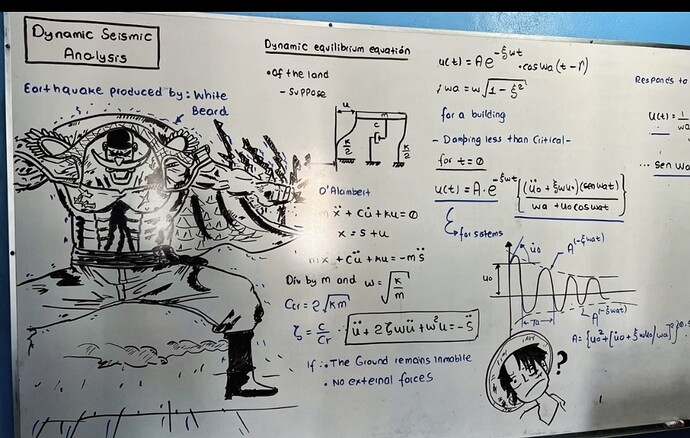 Dynamic Seismic
Analysis
Earthquake produced by: White
Beard
Dynamic equilibrium equation
• Of the land
- Suppose
u
m
c
k/2
k/2
D'Alambert
mẍ + Cu̇ + ku = 0
x = s + u
mẍ + Cü + ku = -ms̈
Div by m and ω = √(k/m)
Ccr = 2√km
ζ = C/Cr ∴ ü + 2ζωu̇ + ω²u = -s̈
If ∴ • The Ground remains inmobile
• No external forces
u(t) = A e^(-ξωt) · cos ωa (t - r)
; ωa = ω√(1 - ξ²)
for a building
- Damping less than Critical -
for t = 0
u(t) = A · e^(-ξωt) {((u̇o + ξωuo)(sen ωat)) / (ωa + uo cos ωat)}
for sistems
u̇o
A^(-ξωat)
uo
Ta
A^(-ξωat)
?
Responds to
u(t) = 1/ωa
... sen ωa